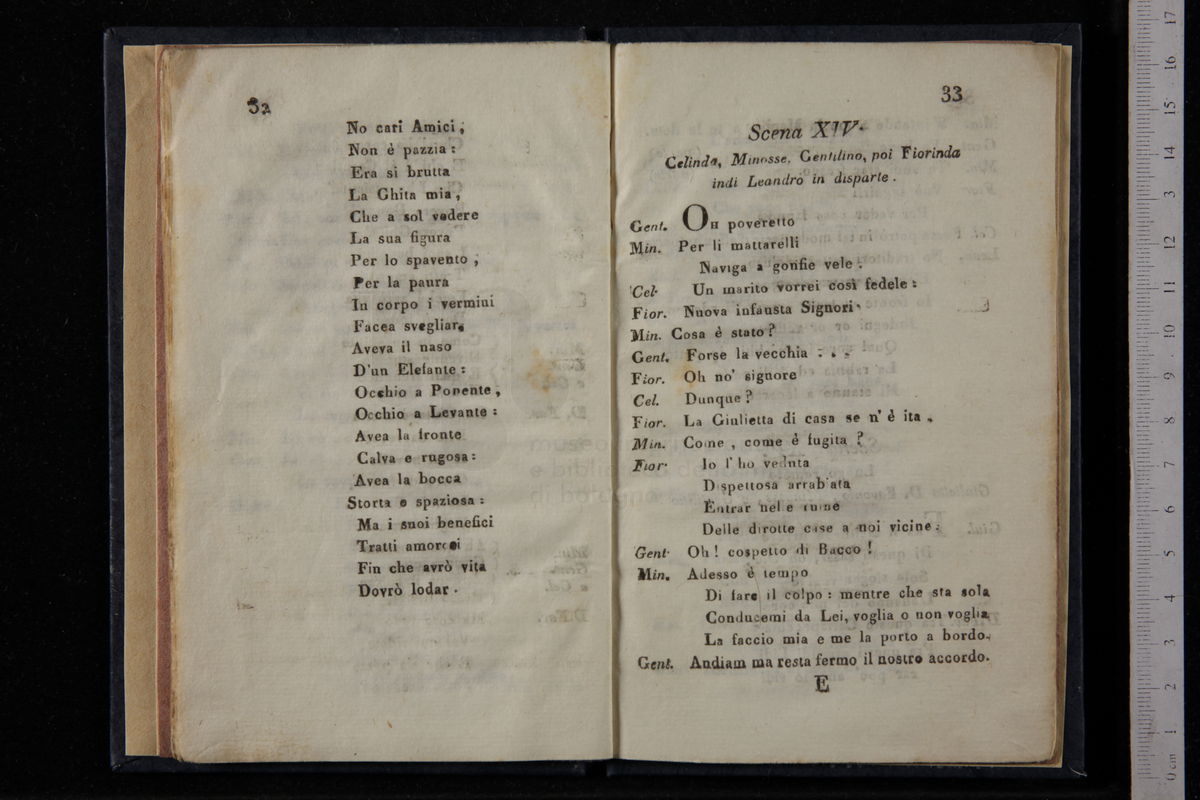 32
No cari Amici,
Non è pazzia:
Era sì brutta
La Ghita mia,
Che a sol vedere
La sua figura
Per lo spavento,
Per la paura
In corpo i vermini
Facea svegliare
Aveva il naso
D'un Elefante:
Occhio a Ponente,
Occhio a Levante:
Avea la fronte
Calva e rugosa:
Avea la bocca
Storta e spaziosa:
Ma i suoi benefici
Tratti amorosi
Fin che avrò vita
Dovrò lodar.
33
Scena XIV.
Celinda, Minosse, Gentilino, poi Fiorinda
indi Leandro in disparte.
Gent. OH poveretto
Min. Per li mattarelli
Naviga a gonfie vele.
Cel. Un marito vorrei così fedele:
Fior. Nuova infausta Signori.
Min. Cosa è stato?
Gent. Forse la vecchia . . .
Fior. Oh no' signore
Cel. Dunque?
Fior. La Giulietta di casa se n'è ita.
Min. Come, come è fugita?
Fior. Io l'ho veduta
Dispettosa arrabiata
Entrar nel e
Delle dirotte case a noi vicine:
Gent. Oh! cospetto di Bacco!
Min. Adesso è tempo
Di fare il colpo: mentre che sta sola
Conducemi da Lei, voglia o non voglia,
La faccio mia e me la porto a bordo.
Gent. Andiam ma resta fermo il nostro accordo.
E
0 cm 1 2 3 4 5 6 7 8 9 10 11 12 13 14 15 16 17